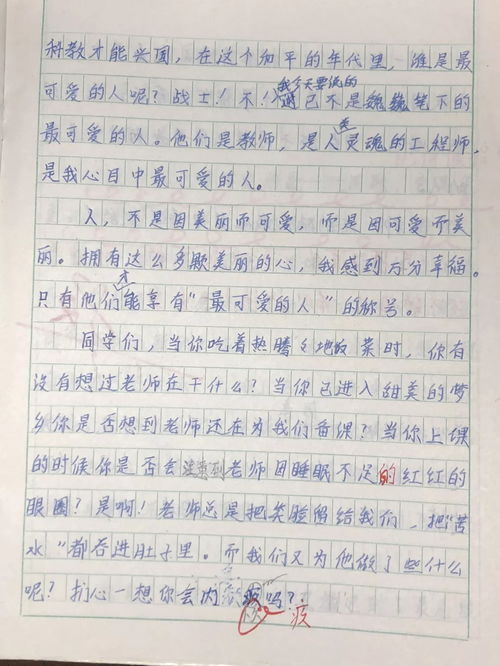 科教才能兴国，在这个和平的年代里，谁是最
我今天要说的
可爱的人呢？战士！不！已不是魏巍笔下的
最可爱的人。他们是教师，是人类灵魂的工程师，
是我心目中最可爱的人。
人，不是因美丽而可爱，而是因可爱而美
丽。拥有这么多颗美丽的心，我感到万分幸福。
只有他们才能享有“最可爱的人”的称号。
同学们，当你吃着热腾腾地饭菜时，你有
没有想过老师在干什么？当你已进入甜美的梦
乡你是否想到老师还在为我们备课？当你上课
的时候你是否会注意到老师因睡眠不足的红红的
眼圈？是啊！老师总是把笑脸留给我们，把“苦
水”都吞进肚子里。而我们又为他做了些什么
呢？扪心一想你会内疚吗？
疚